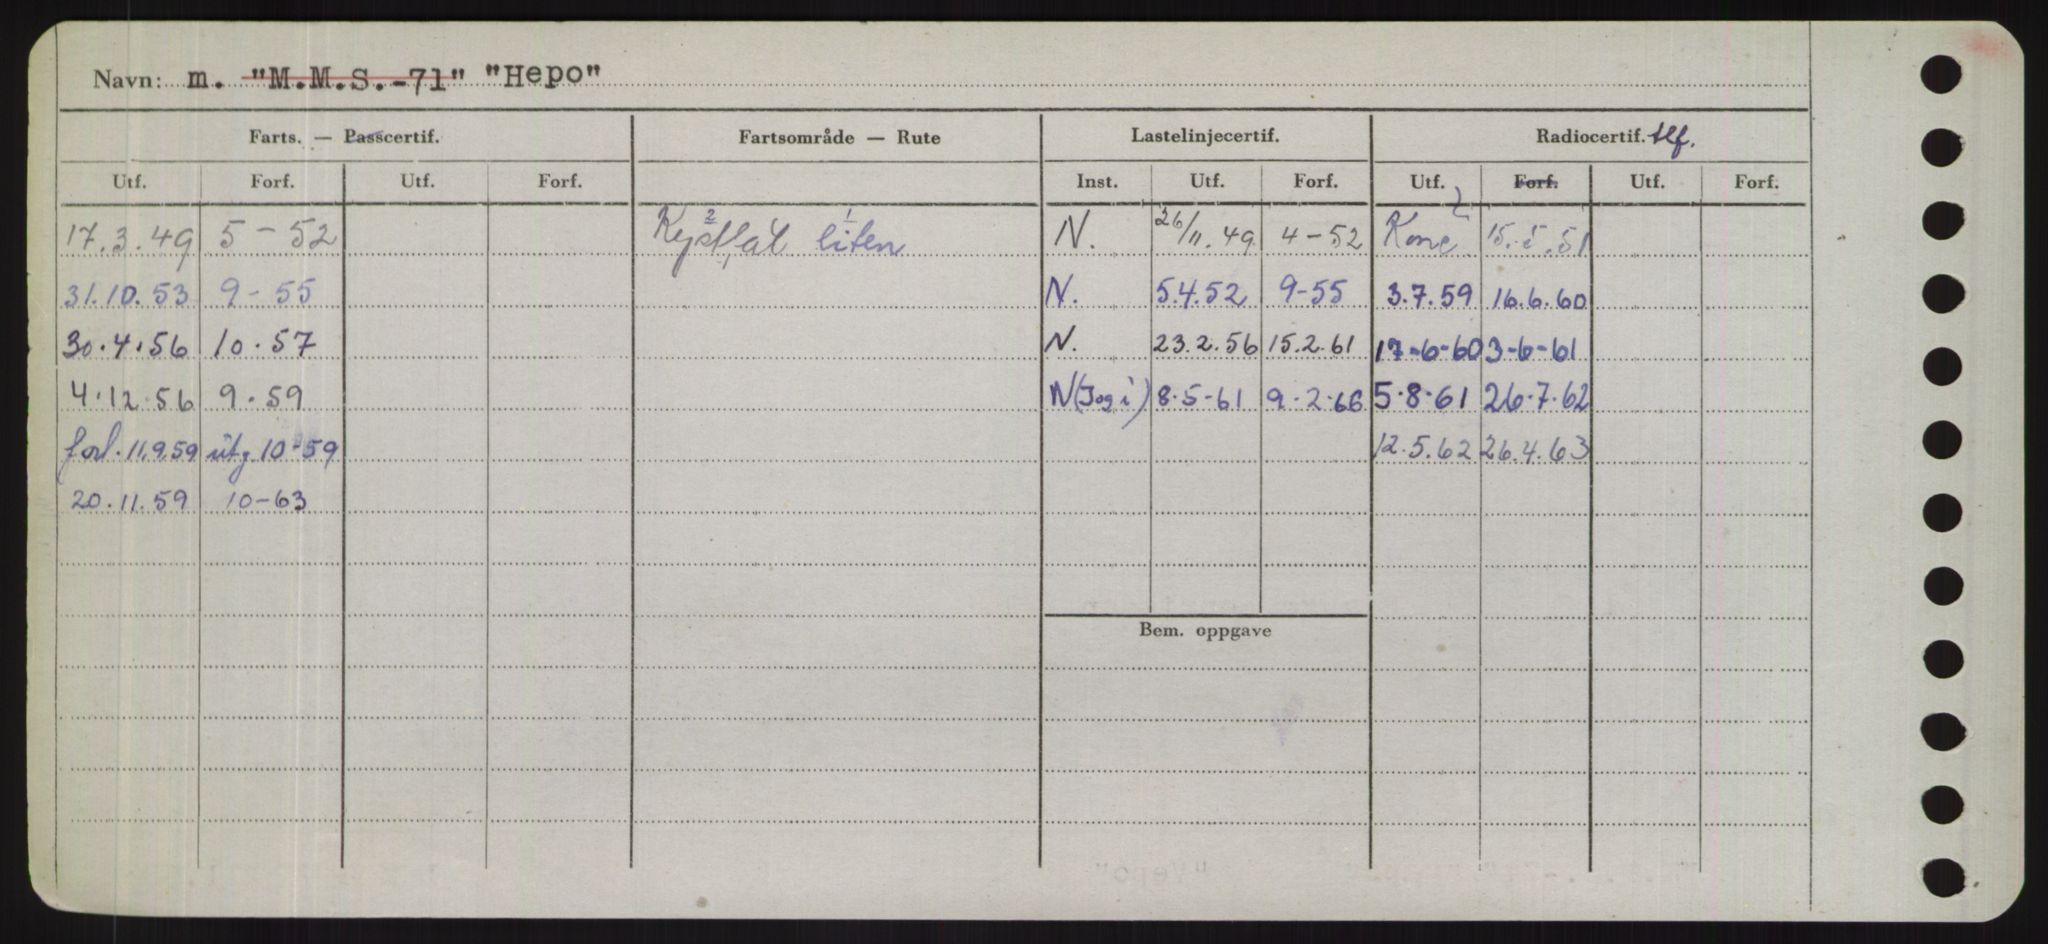 Navn: m. "M.M.S.-71" "Hepo"
Farts. — Passcertif. Fartsområde — Rute Lastelinjecertif. Radiocertif. tlf.
Utf. Forf. Utf. Forf. Inst. Utf. Forf. Utf. Forf. Utf. Forf.
17.3.49 5-52 liten N. 26/11.49 4-52 15.5.51
31.10.53 9-55 N. 5.4.52 9-55 3.7.59 16.6.60
30.4.56 10.57 N. 23.2.56 15.2.61 17-6-60 3-6-61
4.12.56 9.59 N(Jog i) 8.5-61 9.2.66 5.8.61 26.7.62
forl. 11.9.59 utg 10-59 12.5.62 26.4.63
20.11.59 10-63
Bem. oppgave